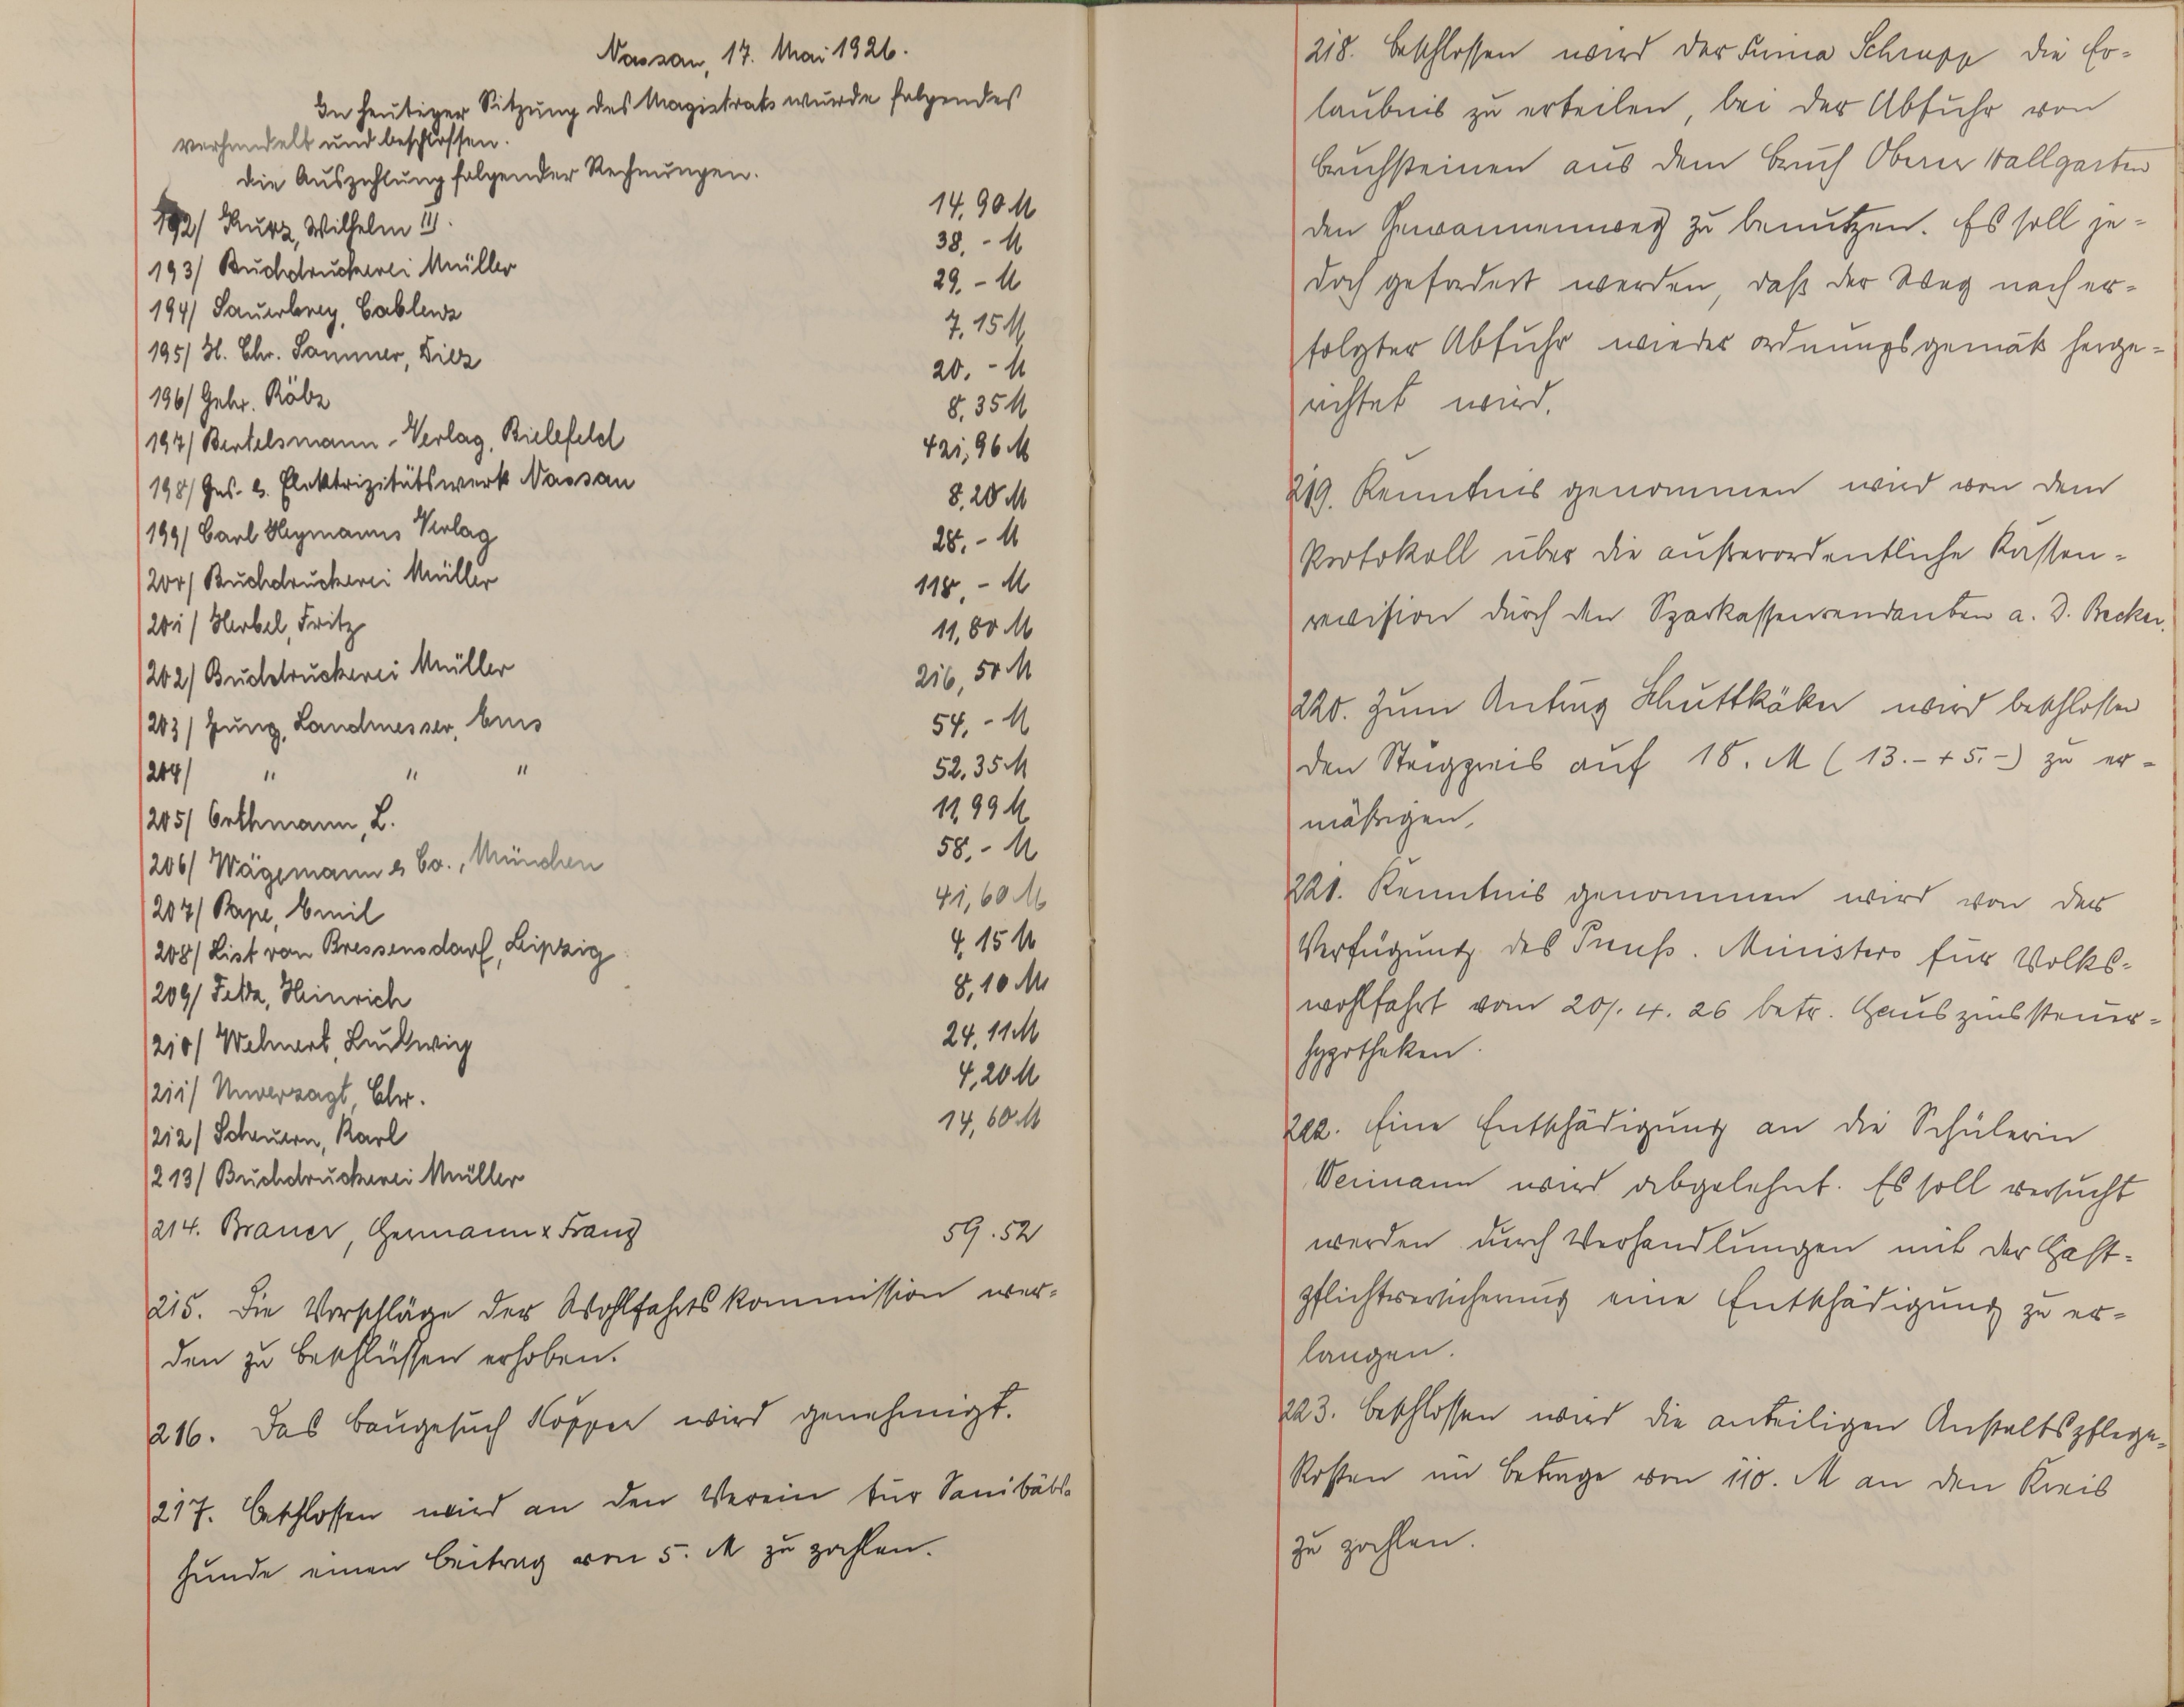 Nassau, 17. Mai 1926.
In heutiger Sitzung des Magistrats wurde folgendes
verhandelt und beschlossen.
die Auszahlung folgender Rechnungen.
192/ Kurz, Wilhelm III. 14,90 M
193/ Buchdruckerei Müller 38,- M
194/ Sauerbrey, Coblenz 29,- M
195/ H. Chr. Sommer, Diez 7,15 M
196/ Gebr. Röbz 20,- M
197/ Bertelsmann-Verlag, Bielefeld 8,35 M
198/ Gas- & Elektrizitätswerk Nassau 421,96 M
199/ Carl Heymanns Verlag 8,20 M
200/ Buchdruckerei Müller 28,- M
201/ Herbel, Fritz 118,- M
202/ Buchdruckerei Müller 11,80 M
203/ Jung, Landmesser, Ems 216,50 M
204/ " " " 54,- M
205/ Orthmann, L. 52,35 M
206/ Wägemann & Co., München 11,99 M
207/ Pape, Emil 58,- M
208/ List von Bressensdorf, Leipzig 41,60 M
209/ Feldz, Heinrich 4,15 M
210/ Wehnert, Ludwig 8,10 M
211/ Unverzagt, Chr. 24,11 M
212/ Scheuern, Karl 4,20 M
213/ Buchdruckerei Müller 14,60 M
214. Brauer, Hermann & Franz 59.52
215. Die Vorschläge der Wohlfahrtskommission wer-
den zu Beschlüssen erhoben.
216. Das Baugesuch Köpper wird genehmigt.
217. Beschlossen wird an den Verein für Sanitäts-
hunde einen Beitrag von 5. M zu zahlen.
218. Beschlossen wird der Firma Schrupp die Er-
laubnis zu erteilen, bei der Abfuhr von
Bruchsteinen aus dem Bruch Oberer Wallgarten
den Gewannenweg zu benutzen. Es soll je-
doch gefordert werden, daß der Weg nach er-
folgter Abfuhr wieder ordnungsgemäß herge-
richtet wird.
219. Kenntnis genommen wird von dem
Protokoll über die außerordentliche Kassen-
revision durch den Sparkassenrendanten a. D. Becker.
220. Zum Antrag Schuttkäker wird beschlossen
den Steigpreis auf 18. M (13.- + 5.-) zu er-
mäßigen.
221. Kenntnis genommen wird von der
Verfügung des Preuß. Ministers für Volks-
wohlfahrt vom 20/. 4. 26 betr. Hauszinssteuer-
hypotheken.
222. Eine Entschädigung an die Schülerin
Weimann wird abgelehnt. Es soll versucht
werden durch Verhandlungen mit der Haft-
pflichtversicherung eine Entschädigung zu er-
langen.
223. Beschlossen wird die anteiligen Anstaltspflege-
kosten im Betrage von 110. M an den Kreis
zu zahlen.